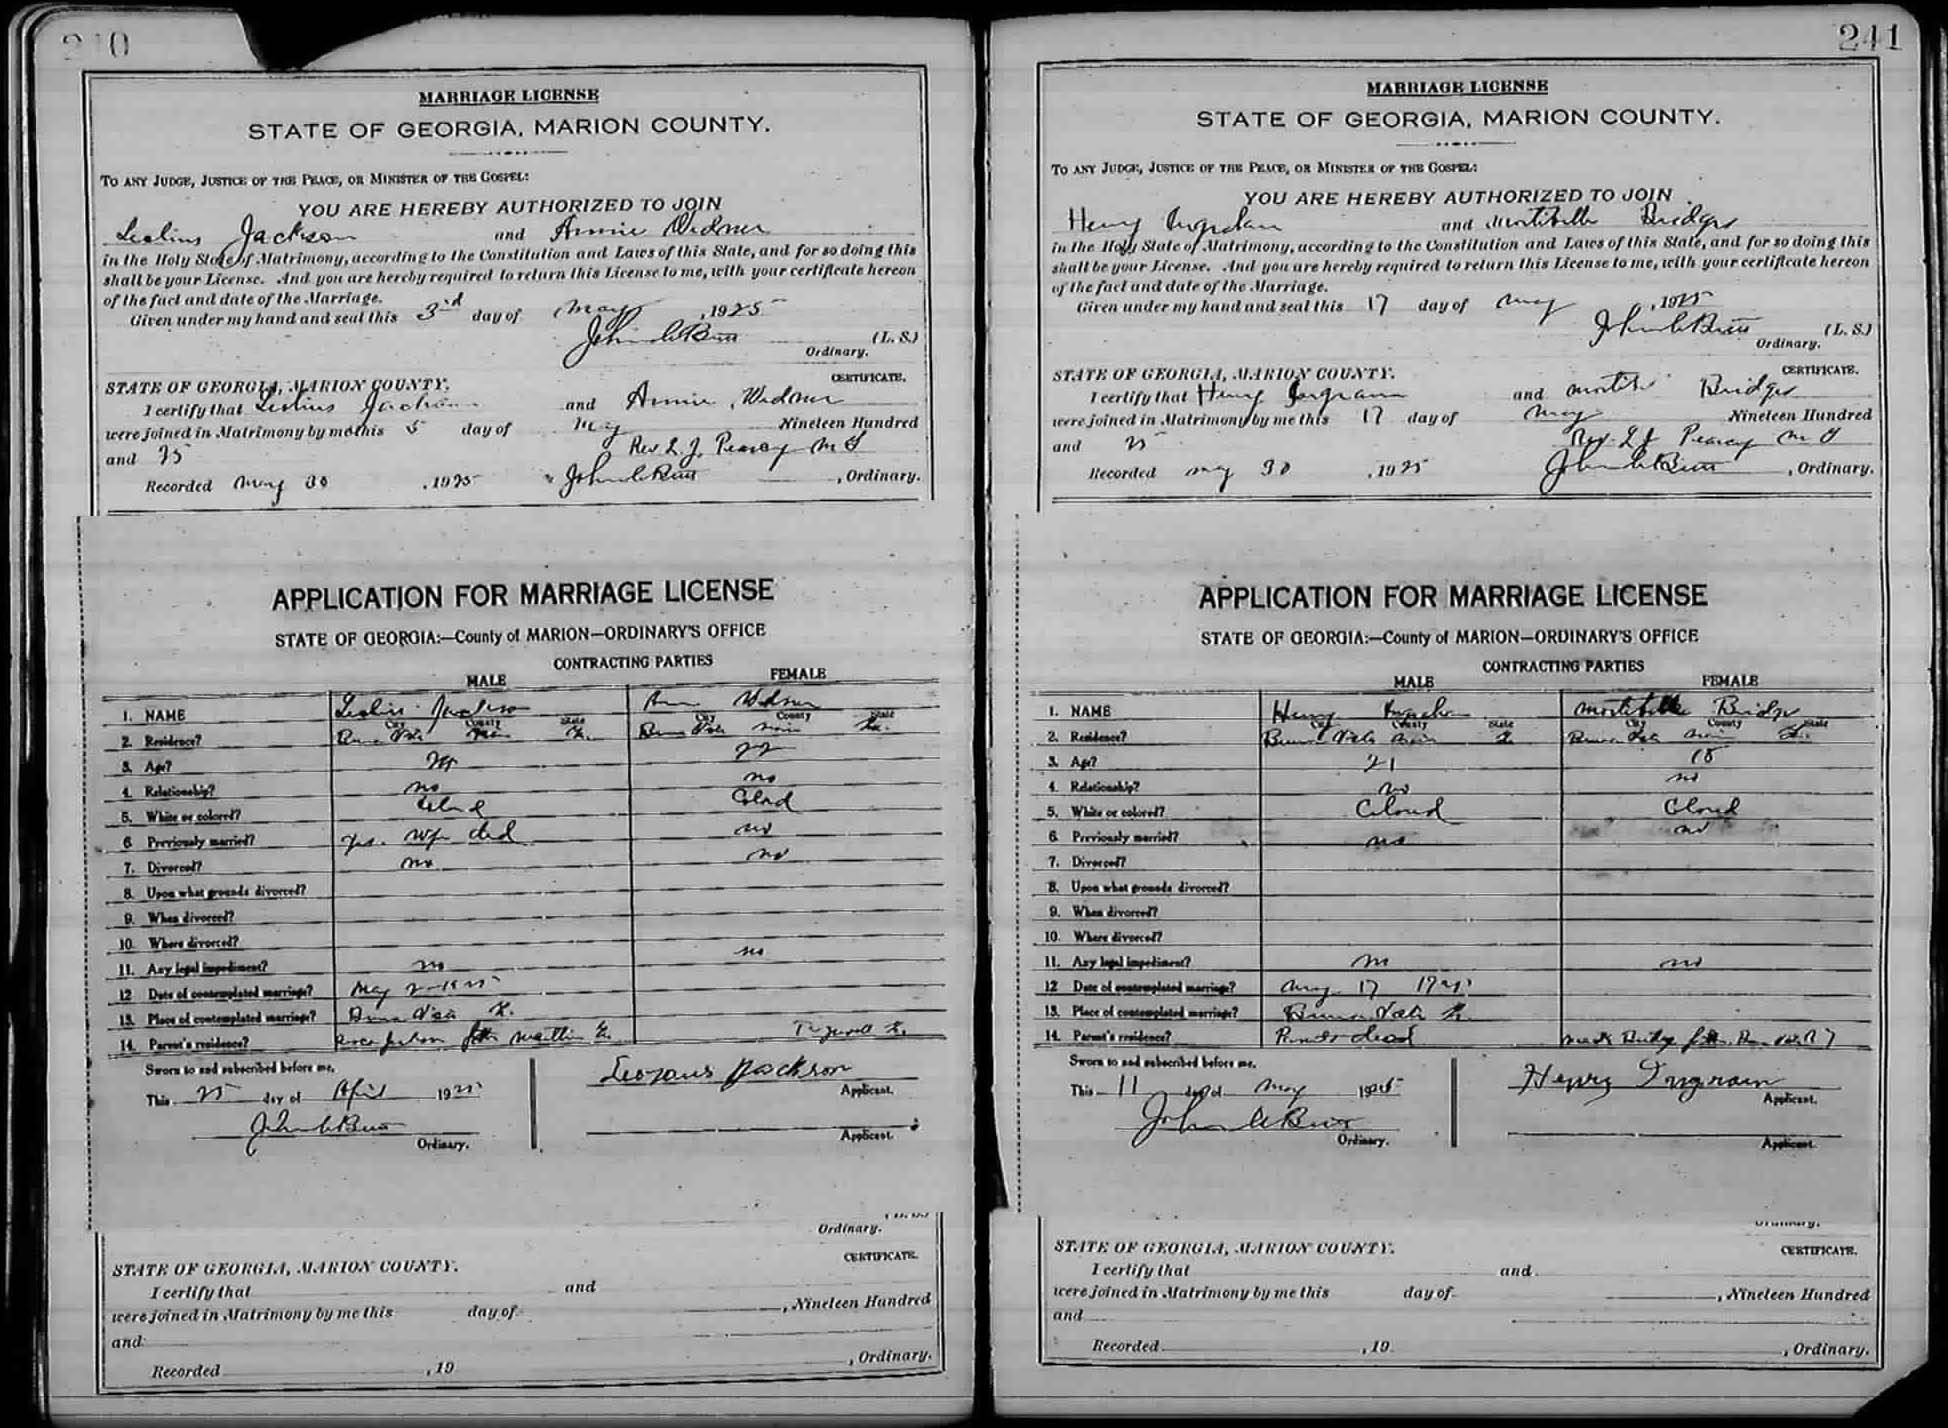 240
MARRIAGE LICENSE
STATE OF GEORGIA, MARION COUNTY.
TO ANY JUDGE, JUSTICE OF THE PEACE, OR MINISTER OF THE GOSPEL:
YOU ARE HEREBY AUTHORIZED TO JOIN
Jackson and Annie Widner
in the Holy State of Matrimony, according to the Constitution and Laws of this State, and for so doing this
shall be your License. And you are hereby required to return this License to me, with your certificate hereon
of the fact and date of the Marriage.
Given under my hand and seal this 3rd day of May, 1925
John C Butt (L. S.)
Ordinary.
STATE OF GEORGIA, MARION COUNTY. CERTIFICATE.
I certify that Jackson and Annie Widner
were joined in Matrimony by me this 5 day of May Nineteen Hundred
and 25 Rev L. J. Pearcy M G
Recorded May 30, 1925 John C Butt, Ordinary.
APPLICATION FOR MARRIAGE LICENSE
STATE OF GEORGIA:—County of MARION—ORDINARY'S OFFICE
CONTRACTING PARTIES
MALE FEMALE
1. NAME Jackson Widner
City County State City County State
2. Residence? Buena Vista Ga. Buena Vista Ga.
3. Age? 22
4. Relationship? no no
5. White or colored? Colord
6. Previously married? yes. wife died no
7. Divorced? no no
8. Upon what grounds divorced?
9. When divorced?
10. Where divorced?
11. Any legal impediment? no no
12 Date of contemplated marriage? May
13. Place of contemplated marriage? Buena Vista Ga.
14. Parent's residence? Jackson father
Sworn to and subscribed before me,
This 25 day of April 1925
Jackson
Applicant.
John C Butt
Ordinary.
Applicant.
Ordinary.
STATE OF GEORGIA, MARION COUNTY. CERTIFICATE.
I certify that and
were joined in Matrimony by me this day of , Nineteen Hundred
and
Recorded , 19 , Ordinary.
241
MARRIAGE LICENSE
STATE OF GEORGIA, MARION COUNTY.
TO ANY JUDGE, JUSTICE OF THE PEACE, OR MINISTER OF THE GOSPEL:
YOU ARE HEREBY AUTHORIZED TO JOIN
Henry Ingram and Bridges
in the Holy State of Matrimony, according to the Constitution and Laws of this State, and for so doing this
shall be your License. And you are hereby required to return this License to me, with your certificate hereon
of the fact and date of the Marriage.
Given under my hand and seal this 17 day of May, 1925
John C Butt (L. S.)
Ordinary.
STATE OF GEORGIA, MARION COUNTY. CERTIFICATE.
I certify that Henry Ingram and Bridges
were joined in Matrimony by me this 17 day of May Nineteen Hundred
and 25 Rev. L J Pearcy M G
Recorded May 30, 1925 John C Butt, Ordinary.
APPLICATION FOR MARRIAGE LICENSE
STATE OF GEORGIA:—County of MARION—ORDINARY'S OFFICE
CONTRACTING PARTIES
MALE FEMALE
1. NAME Henry Ingram Bridges
City County State City County State
2. Residence? Buena Vista Ga Buena Vista Ga.
3. Age? 21 18
4. Relationship? no no
5. White or colored? Clourd Clourd
6. Previously married? no no
7. Divorced?
8. Upon what grounds divorced?
9. When divorced?
10. Where divorced?
11. Any legal impediment? no no
12 Date of contemplated marriage? May 17 1925
13. Place of contemplated marriage? Buena Vista Ga
14. Parent's residence? Parents dead
Sworn to and subscribed before me,
This 11 day of May 1925
Henry Ingram
Applicant.
John C Butt
Ordinary.
Applicant.
Ordinary.
STATE OF GEORGIA, MARION COUNTY. CERTIFICATE.
I certify that and
were joined in Matrimony by me this day of , Nineteen Hundred
and
Recorded , 19 , Ordinary.